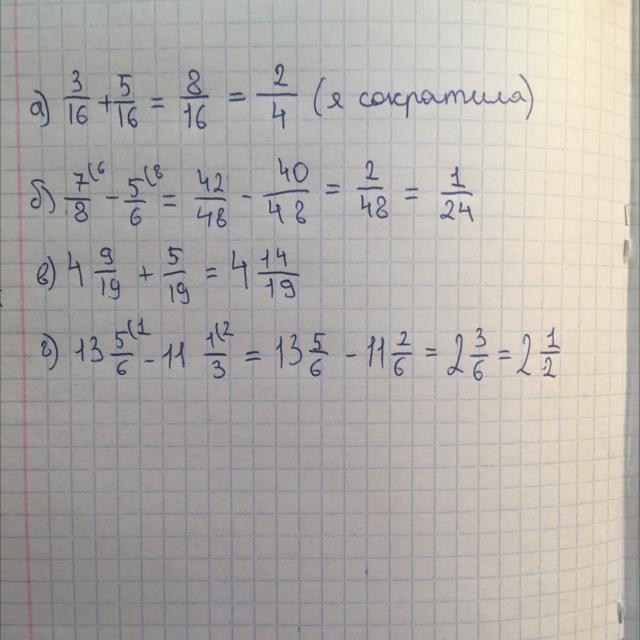 а) 3/16 + 5/16 = 8/16 = 2/4 (я сократила)
б) 7/8 (6 - 5/6 (8 = 42/48 - 40/48 = 2/48 = 1/24
в) 4 9/19 + 5/19 = 4 14/19
г) 13 5/6 (1 - 11 1/3 (2 = 13 5/6 - 11 2/6 = 2 3/6 = 2 1/2